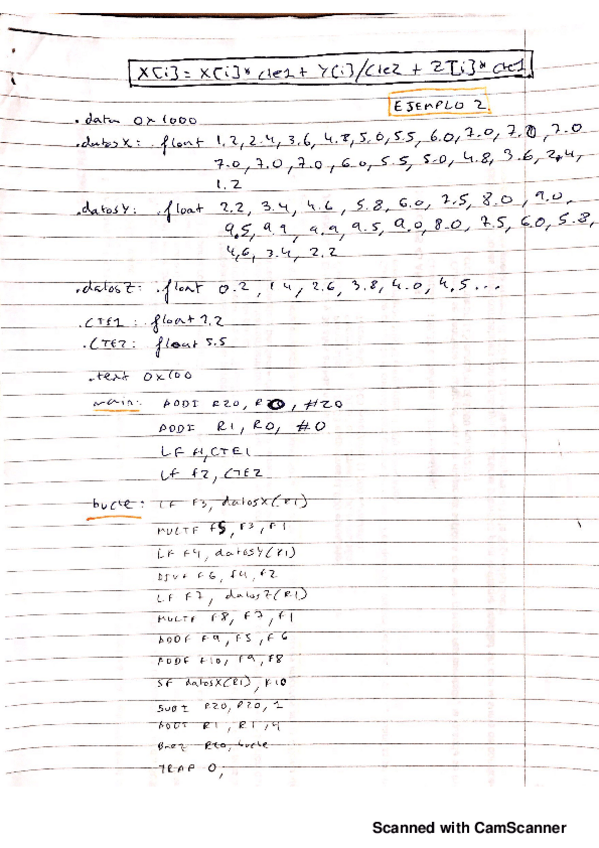 X[i] = X[i]* cte1 + Y[i]/cte2 + Z[i]* cte1
EJEMPLO 2
.data 0x1000
.datosX: .float 1.2, 2.4, 3.6, 4.8, 5.0, 5.5, 6.0, 7.0, 7.0, 7.0
7.0, 7.0, 7.0, 6.0, 5.5, 5.0, 4.8, 3.6, 2.4,
1.2
.datosY: .float 2.2, 3.4, 4.6, 5.8, 6.0, 7.5, 8.0, 9.0,
9.5, 9.9, 9.9, 9.5, 9.0, 8.0, 7.5, 6.0, 5.8,
4.6, 3.4, 2.2
.datosZ: .float 0.2, 1.4, 2.6, 3.8, 4.0, 4.5...
.CTE1: float 2.2
.CTE2: float 5.5
.text 0x100
main: ADDI R20, R0, #20
ADDI R1, R0, #0
LF f1, CTE1
LF f2, CTE2
bucle: LF F3, datosX(R1)
MULTF F5, F3, F1
LF F4, datosY(R1)
DIVF F6, F4, F2
LF F7, datosZ(R1)
MULTF F8, F7, F1
ADDF F9, F5, F6
ADDF F10, F9, F8
SF datosX(R1), F10
SUBI R20, R20, 1
ADDI R1, R1, 4
BNEZ R20, bucle
TRAP 0,
Scanned with CamScanner